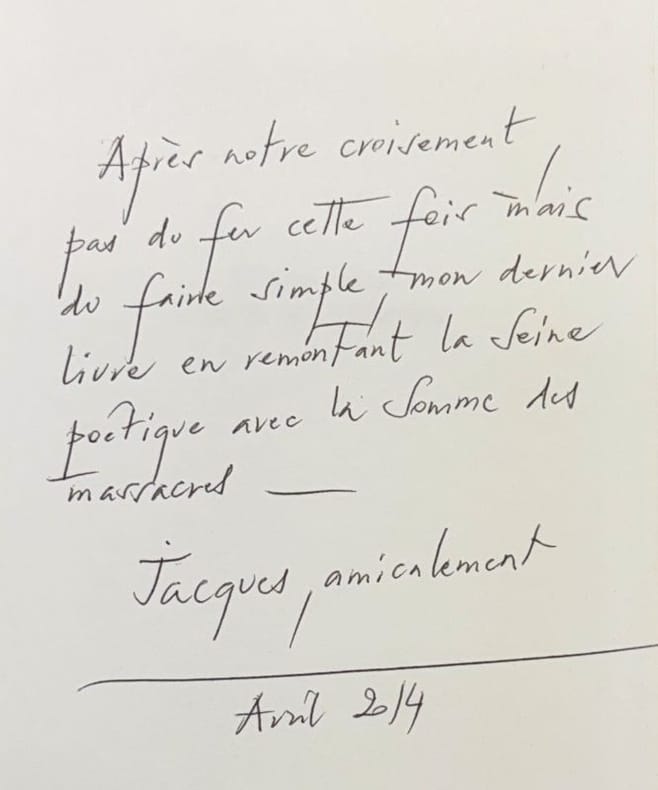 Après notre croisement,
pas du fer cette fois mais
du faire simple, mon dernier
livre en remontant la Seine
poétique avec la Somme des
massacres —
Jacques, amicalement
Avril 2014